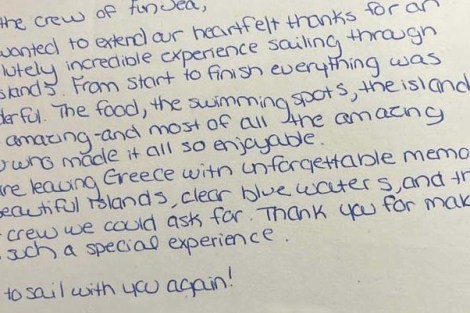 the crew of Funsea,
wanted to extend our heartfelt thanks for an
lutely incredible experience sailing through
slands. From start to finish everything was
derful. The food, the swimming spots, the island
amazing-and most of all the amazing
who made it all so enjoyable.
re leaving Greece with unforgettable memo
beautiful islands, clear blue waters, and th
crew we could ask for. Thank you for mak
such a special experience.
to sail with you again!